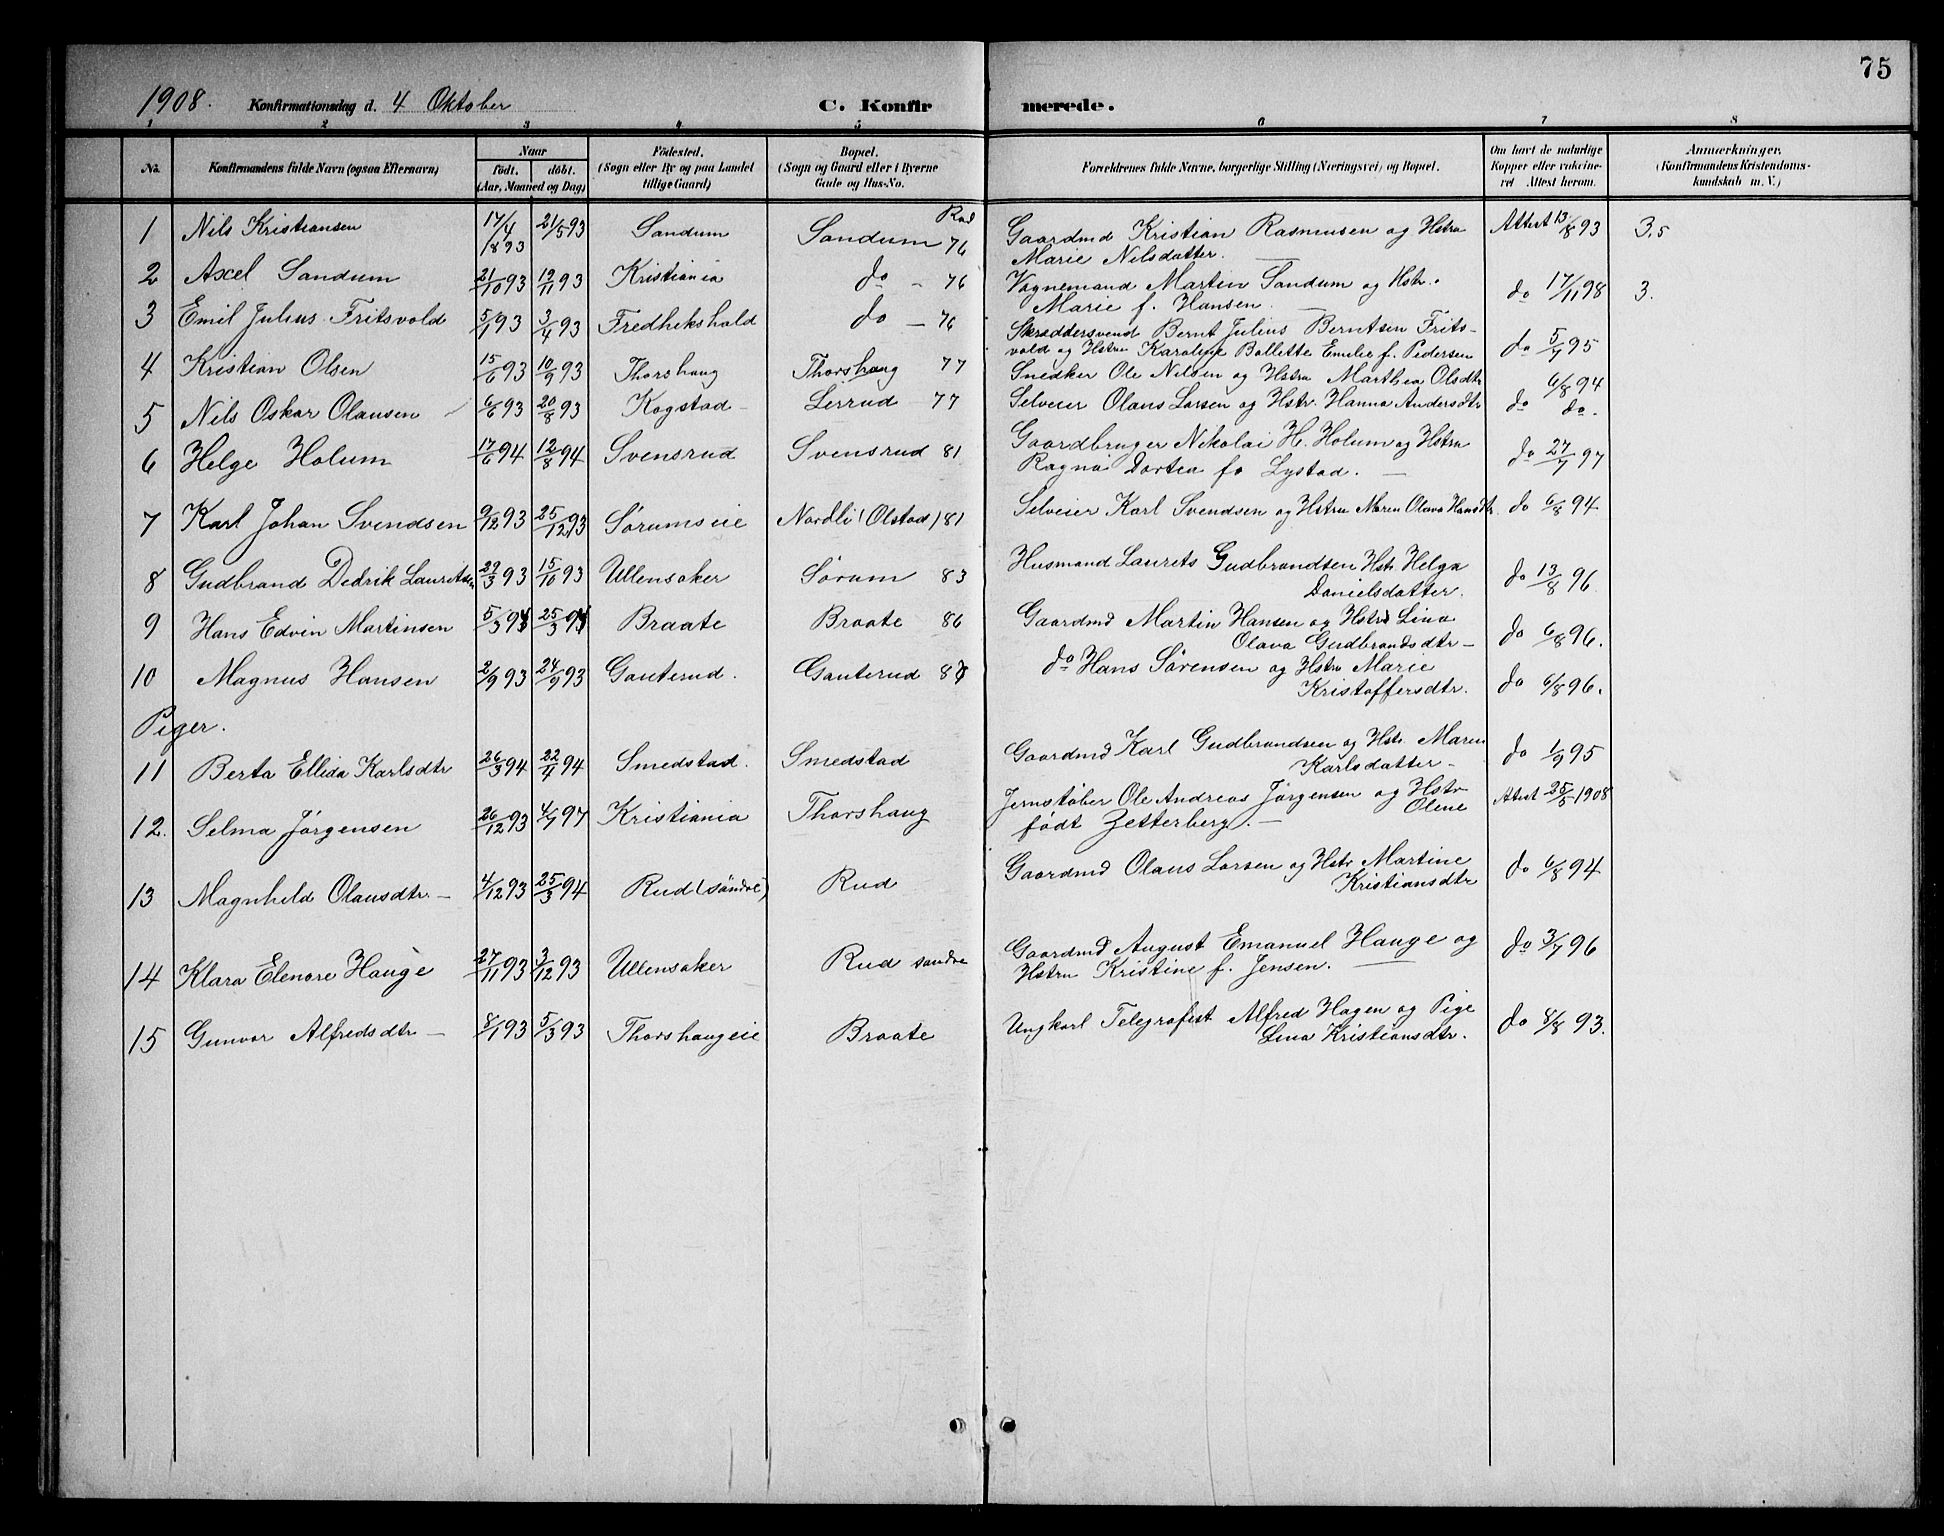 75
1908. Konfirmationsdag d. 4 Oktober C. Konfirmerede.
1 2 3 4 5 6 7 8
No. Konfirmandens fulde Navn (ogsaa Efternavn) Naar født. døbt. (Aar, Maaned og Dag) Fødested. (Sogn eller By og paa Landet tillige Gaard) Bopæl. (Sogn og Gaard eller i Byerne Gade og Hus-No. Forældrenes fulde Navne, borgerlige Stilling (Næringsvei) og Bopæl. Om havt de naturlige Kopper eller vakcineret Attest herom. Anmærkninger. (Konfirmandens Kristendomskundskab m. V.)
1 Nils Kristiansen 17/4 1893 21/5 93 Sandum Sandum 76 Gaardmd Kristian Rasmussen og Hstru Attest 13/8 93 3.5
Marie Nilsdatter.
2 Axel Sandum 21/10 93 12/11 93 Kristiania do - 76 Vognemand Martin Sandum og Hstr. do 17/11 98 3.
Marie f. Hansen.
3 Emil Julius Fritsvold 5/1 93 3/4 93 Fredhikshald do - 76 Skræddersvend Bernt Julius Berntsen Frits-
vold og Hstru Karoline Bollette Emilie f. Pedersen do 5/7 95
4 Kristian Olsen 15/6 93 10/9 93 Thorshaug Thorshaug 77 Snedker Ole Nilsen og Hstru Marthea Olsdtr 6/8 94
5 Nils Oskar Olausen 6/6 93 20/8 93 Kogstad Lerrud 77 Selveier Olaus Larsen og Hstr. Hanna Andersdtr do do.
6 Helge Holum 17/6 94 12/8 94 Svensrud Svensrud 81 Gaardbruger Nikolai H. Holum og Hstru
Ragna Dortea fo Lystad. - do 27/7 97
7 Karl Johan Svendsen 9/12 93 25/12 93 Sørumseie Nordli (Olstad) 81 Selveier Karl Svendsen og Hstru Maren Olava Hansdtr. do 6/8 94
8 Gudbrand Dedrik Lauritsen 29/3 93 15/10 93 Ullensaker Sørum 83 Husmand Laurets Gudbrandsen Hstr Helga
Danielsdatter. do 13/8 96
9 Hans Edvin Martinsen 5/3 94 25/3 94 Braate Braate 86 Gaardmd Martin Hansen og Hstr Lina
Olava Gudbrandsdtr - do 6/8 96.
10 Magnus Hansen 2/9 93 24/9 93 Gauterud. Gauterud do Hans Sørensen og Hstru Marie
Kristoffersdtr. do 6/8 96.
Piger.
11 Berta Ellida Karlsdtr 26/3 94 22/4 94 Smedstad. Smedstad Gaardmd Karl Gudbrandsen og Hstr. Maren
Karlsdatter - do 1/9 95
12. Selma Jørgensen 26/12 93 4/7 97 Kristiania Thorshaug Jernstøber Ole Andreas Jørgensen og Hstr Attest 25/5 1908
Olene
født Zetterberg. -
13 Magnhild Olausdtr. - 4/12 93 25/3 94 Rud (søndre) Rud Gaardmd Olaus Larsen og Hstr Martine
Kristiansdtr do 6/8 94
14 Klara Elenore Hauge 27/11 93 3/12 93 Ullensaker Rud søndre Gaardmd August Emanuel Hauge og
Hstru Kristine f. Jensen. do 3/7 96
15 Gunvor Alfredsdtr - 8/1 93 5/3 93 Thorshaugeie Braate Ungkarl Telegrafist Alfred Hagen og Pige
Lina Kristiansdtr. do 8/8 93.